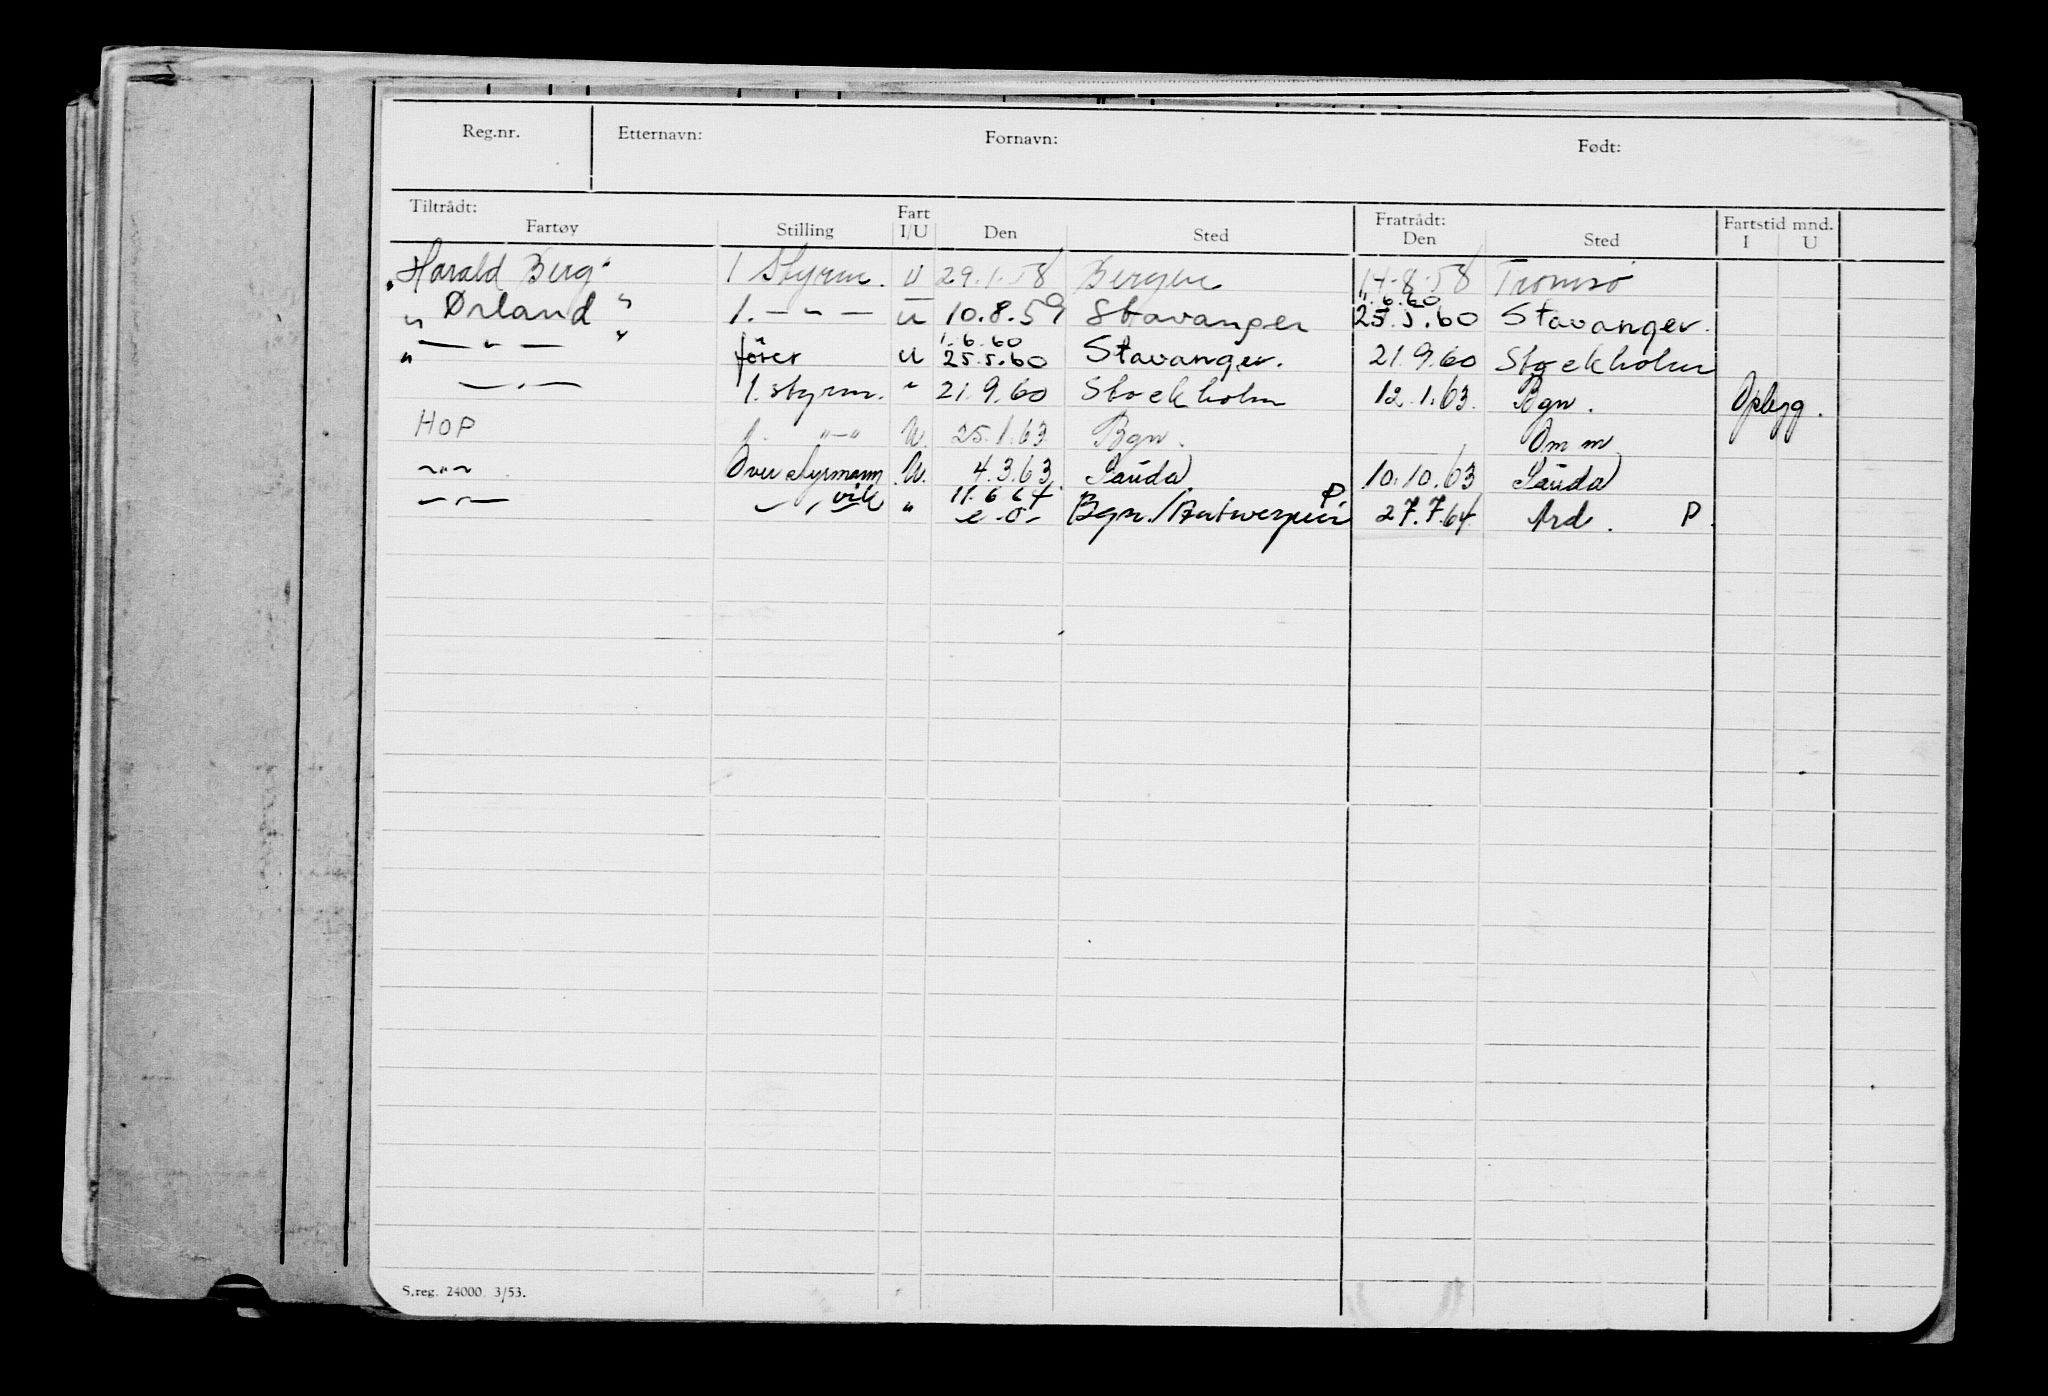 Reg.nr. Etternavn: Fornavn: Født:
Tiltrådt: Fartøy Stilling Fart I/U Den Sted Fratrådt: Den Sted Fartstid mnd. I U
"Harald Berg" 1 Styrm. U 29.1.58 Bergen 14.8.58 Tromsø
1.6.60
" Ørland " 1. — " — U 10.8.59 Stavanger 25.5.60 Stavanger.
1.6.60
" — " — " fører U 25.5.60 Stavanger. 21.9.60 Stockholm
— " — 1. styrm. " 21.9.60 Stockholm 12.1.63. Bgn. Opbygg.
HOP 1. " — " U. 25.1.63 Bgn. Om m
— " — Overstyrmann U. 4.3.63. Sauda 10.10.63 Sauda
— " — — " — vik " 11.6.64 e.o. Bgn./Antwerpen P 27.7.64 Ard. P.
S.reg. 24000. 3/53.